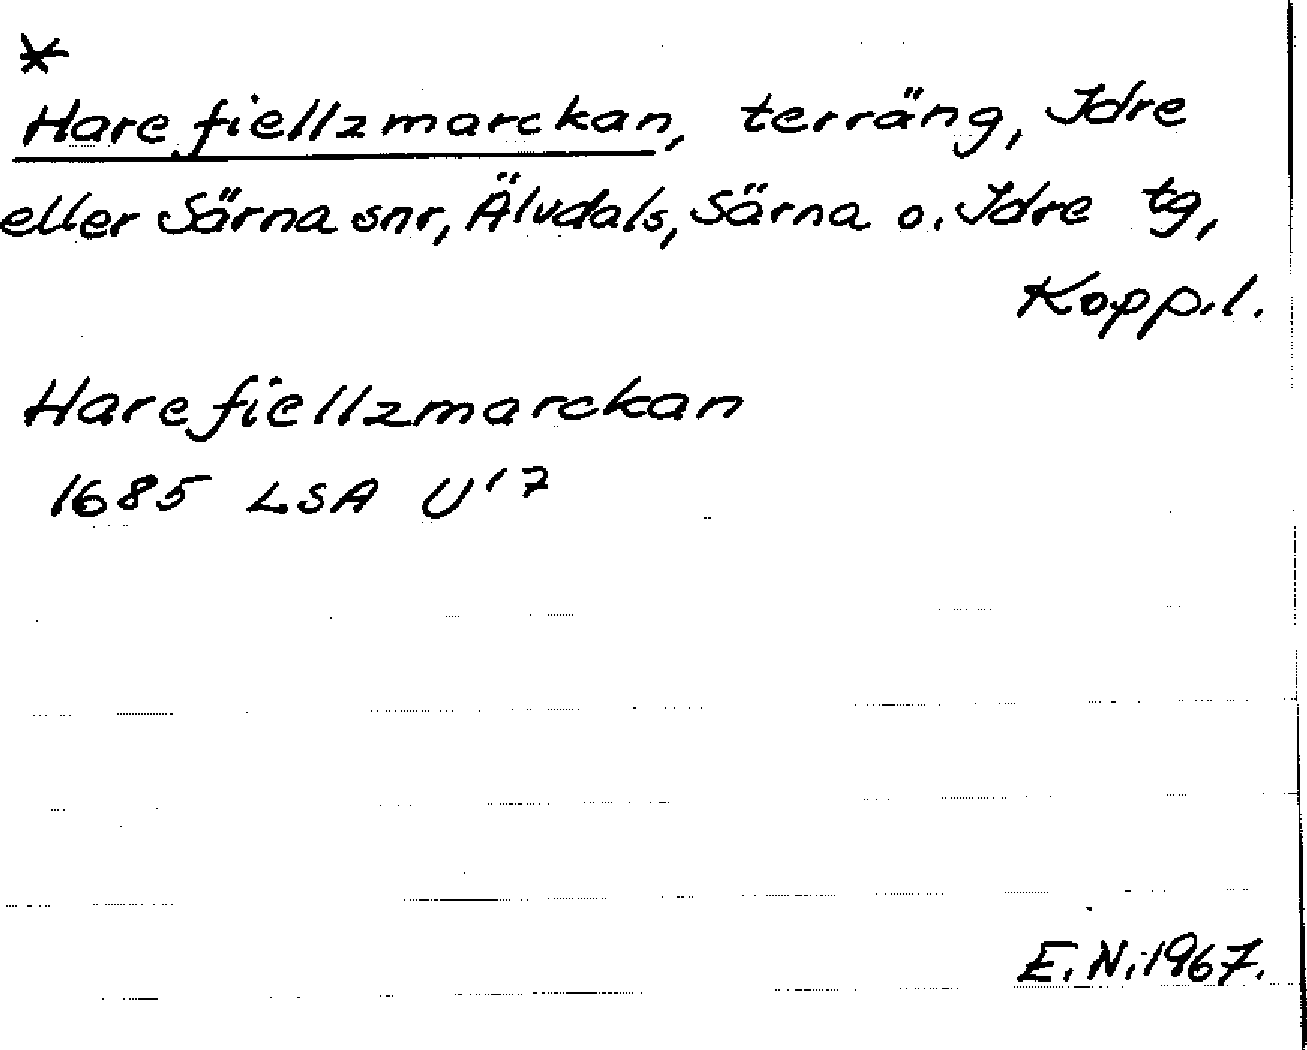 *
Harefiellzmarckan, terräng, Idre
eller Särna snr, Älvdals, Särna o. Idre tg,
Kopp.l.
Harefiellzmarckan
1685 LSA U'7
E.N. 1967.